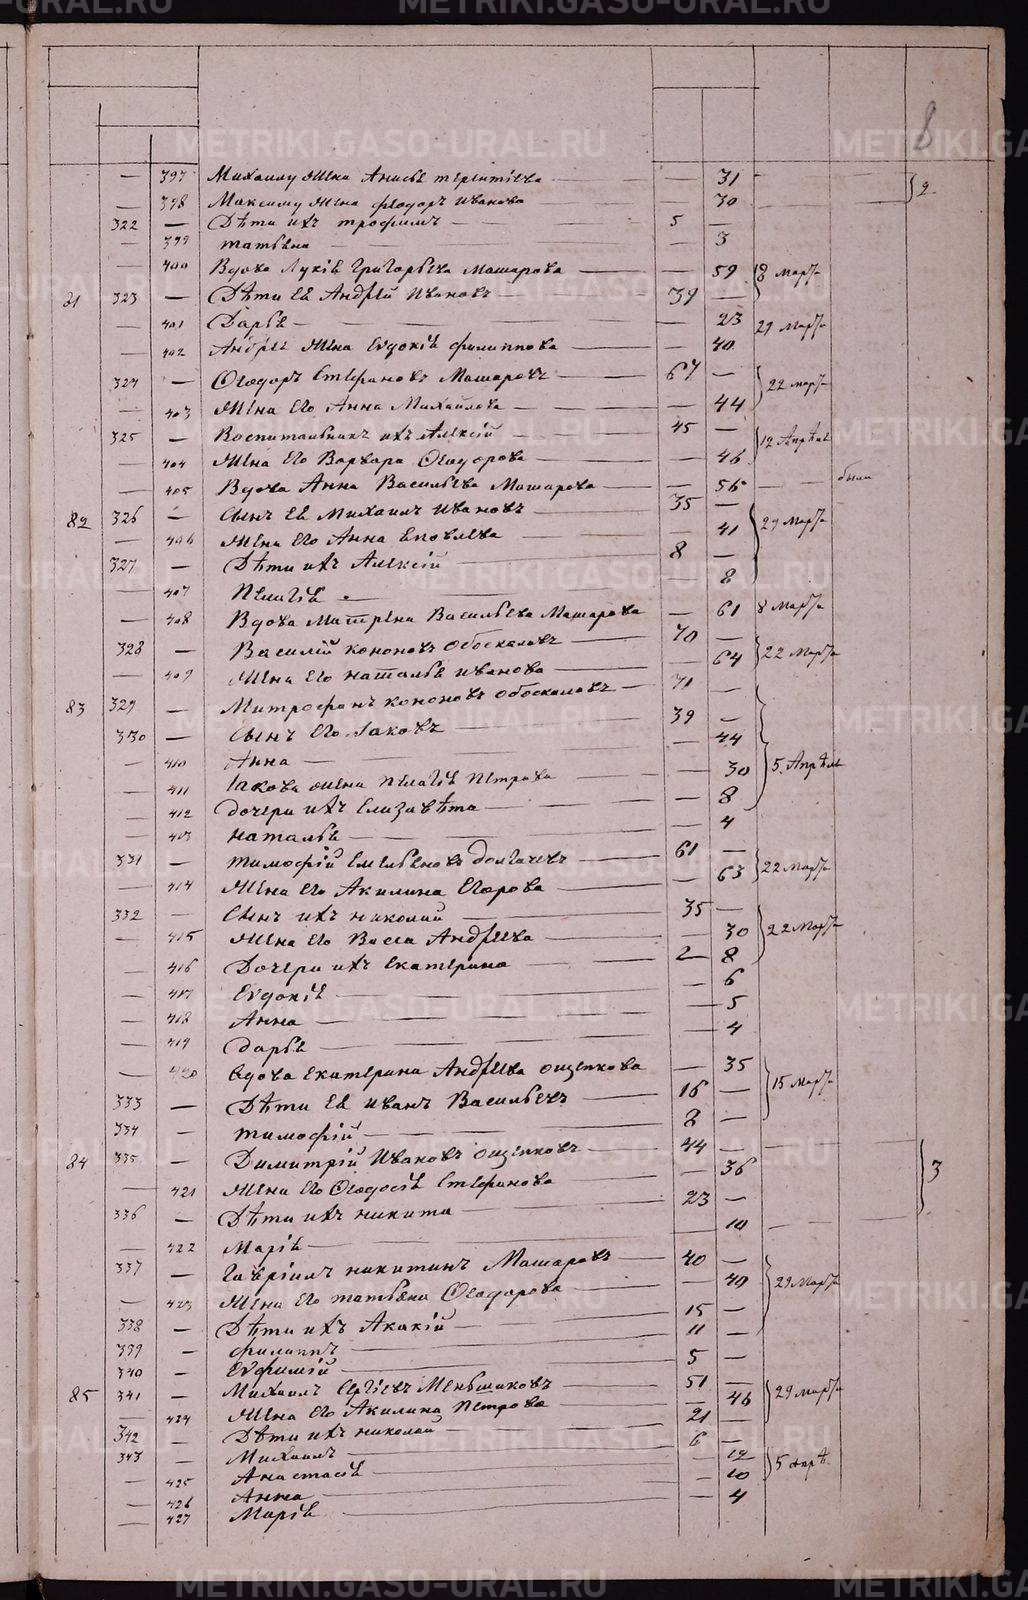 8
397 Михаилу жена Анисья Терентьева 31
398 Максиму жена Ѳеодора Иванова 30 2
322 Дѣти ихъ Трофимъ 5
399 Татьяна 3
400 Вдова Лукія Григорьева Машарова 59 18 Марта
81 323 Дѣти ея Андрей Ивановъ 39
401 Дарья 23 29 Марта
402 Андрея жена Евдокія Филиппова 40
324 Ѳеодоръ Стефановъ Машаровъ 67 22 марта
403 Жена его Анна Михайлова 44
325 Воспитанникъ ихъ Алексій 45 12 Апрѣля
404 Жена его Варвара Ѳеодорова 46
405 Вдова Анна Васильева Машарова 56 были
82 326 Сынъ ея Михаилъ Ивановъ 35 29 Марта
406 Жена его Анна Яковлева 41
327 Дѣти ихъ Алексій 8
407 Пелагія 8
408 Вдова Матрена Васильева Машарова 61 8 Марта
328 Василій Кононовъ Обоскаловъ 70 22 Марта
409 Жена его Наталья Иванова 64
83 329 Митрофанъ Кононовъ Обоскаловъ 71
330 Сынъ его Іаковъ 39
410 Анна 44 5 Апрѣля
411 Іакова жена Пелагія Петрова 30
412 Дочери ихъ Елизавѣта 8
413 Наталья 4
331 Тимофій Емельяновъ Долгачевъ 61 22 Марта
414 Жена его Акилина Егорова 63
332 Сынъ ихъ Николай 35 22 Марта
415 Жена его Васса Андреева 30
416 Дочери ихъ Екатерина 2 8
417 Евдокія 6
418 Анна 5
419 Дарья 4
420 Вдова Екатерина Андреева Ощепкова 35 15 Марта
333 Дѣти ея Иванъ Васильевъ 16
334 Тимофій 2
84 335 Димитрій Ивановъ Ощепковъ 44 3
421 Жена его Ѳеодосія Стефанова 36
336 Дѣти ихъ Никита 23
422 Марія 10
337 Гавріилъ Никитинъ Машаровъ 40 29 Марта
423 Жена его Татьяна Ѳеодорова 40
338 Дѣти ихъ Акакій 15
339 Филиппъ 11
340 Евфимій 5
85 341 Михаилъ Сергіевъ Меньшиковъ 51 29 марта
424 Жена его Акилина Петрова 46
342 Дѣти ихъ Николай 21
343 Михаилъ 6
425 Анастасія 12 5 Апрѣ.
426 Анна 10
427 Марія 4
METRIKI.GASO-URAL.RU